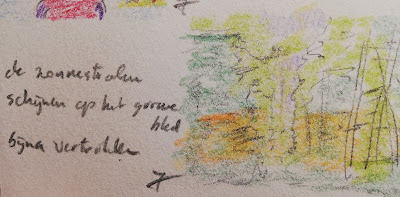 de zonnestralen
schijnen op het groene
bled
bijna vertrokken